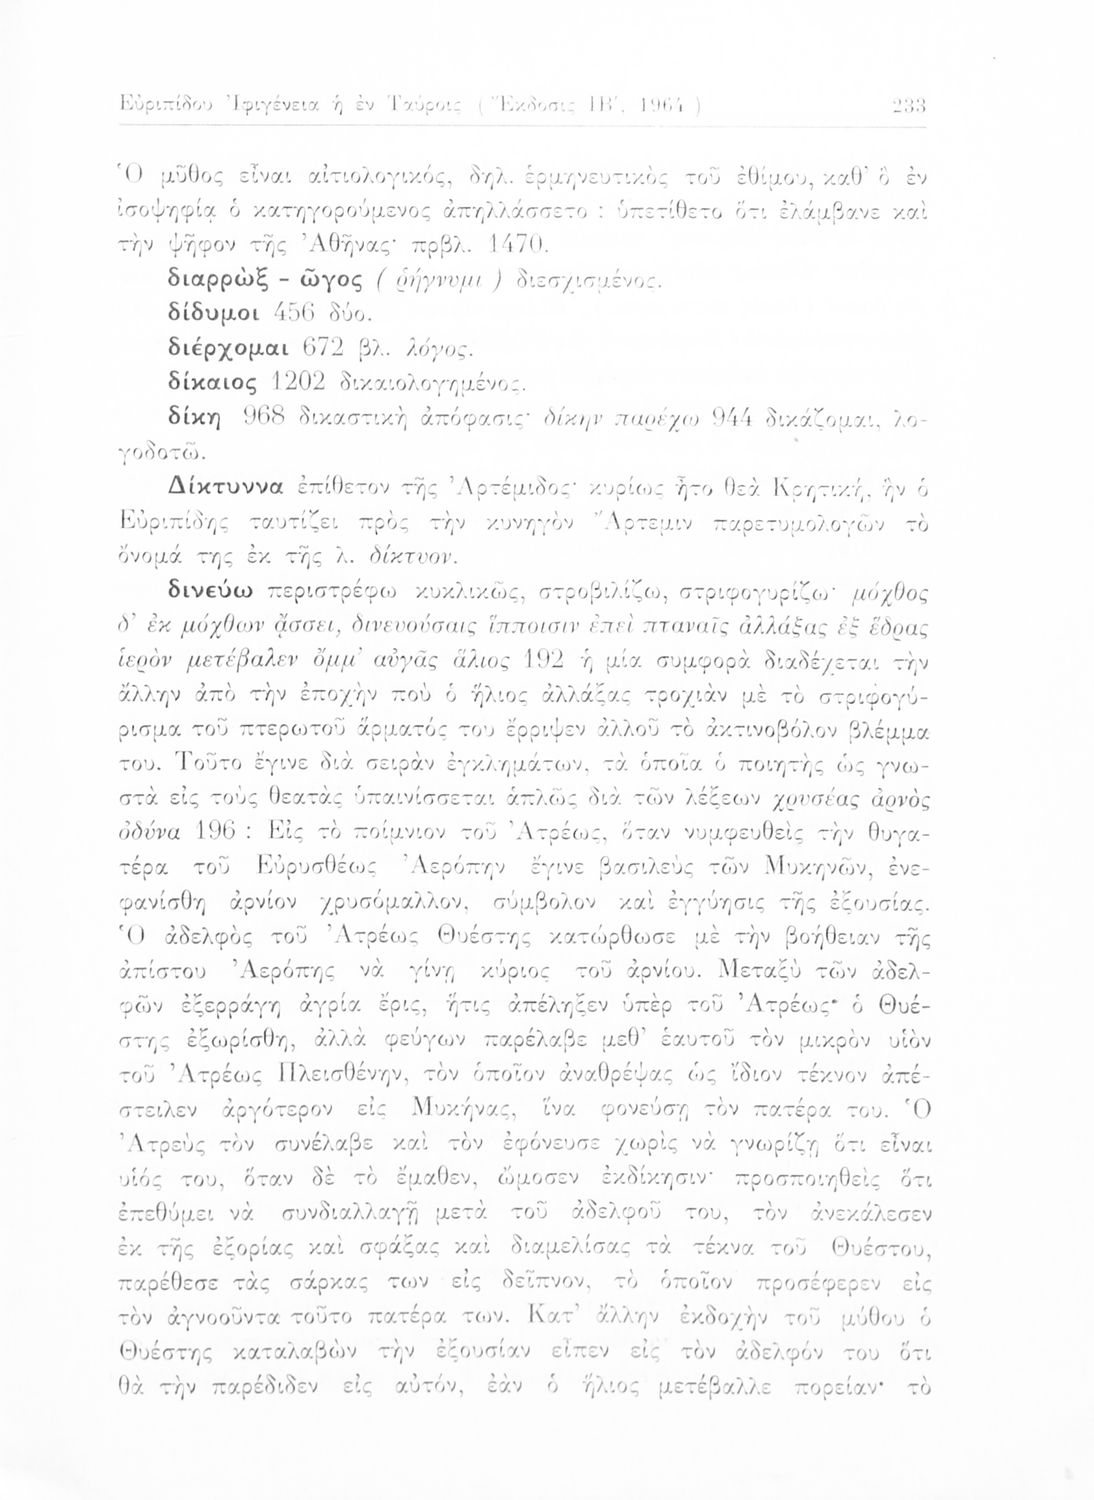 Εὐριπίδου Ἰφιγένεια ἡ ἐν Ταύροις ( Ἔκδοσις ΙΒ΄, 1964 ) 233
Ὁ μῦθος εἶναι αἰτιολογικός, δηλ. ἑρμηνευτικὸς τοῦ ἐθίμου, καθ᾽ ὃ ἐν
ἰσοψηφίᾳ ὁ κατηγορούμενος ἀπηλλάσσετο : ὑπετίθετο ὅτι ἐλάμβανε καὶ
τὴν ψῆφον τῆς Ἀθῆνας· πρβλ. 1470.
διαρρὼξ - ῶγος ( ῥήγνυμι ) διεσχισμένος.
δίδυμοι 456 δύο.
διέρχομαι 672 βλ. λόγος.
δίκαιος 1202 δικαιολογημένος.
δίκη 968 δικαστικὴ ἀπόφασις· δίκην παρέχω 944 δικάζομαι, λο-
γοδοτῶ.
Δίκτυννα ἐπίθετον τῆς Ἀρτέμιδος· κυρίως ἦτο θεὰ Κρητική, ἣν ὁ
Εὐριπίδης ταυτίζει πρὸς τὴν κυνηγὸν Ἄρτεμιν παρετυμολογῶν τὸ
ὄνομά της ἐκ τῆς λ. δίκτυον.
δινεύω περιστρέφω κυκλικῶς, στροβιλίζω, στριφογυρίζω· μόχθος
δ᾽ ἐκ μόχθων ᾄσσει, δινευούσαις ἵπποισιν ἐπεὶ πταναῖς ἀλλάξας ἐξ ἕδρας
ἱερὸν μετέβαλεν ὄμμ᾽ αὐγᾶς ἅλιος 192 ἡ μία συμφορὰ διαδέχεται τὴν
ἄλλην ἀπὸ τὴν ἐποχὴν ποὺ ὁ ἥλιος ἀλλάξας τροχιὰν μὲ τὸ στριφογύ-
ρισμα τοῦ πτερωτοῦ ἅρματός του ἔρριψεν ἀλλοῦ τὸ ἀκτινοβόλον βλέμμα
του. Τοῦτο ἔγινε διὰ σειρὰν ἐγκλημάτων, τὰ ὁποῖα ὁ ποιητὴς ὡς γνω-
στὰ εἰς τοὺς θεατὰς ὑπαινίσσεται ἁπλῶς διὰ τῶν λέξεων χρυσέας ἀρνὸς
ὀδύνα 196 : Εἰς τὸ ποίμνιον τοῦ Ἀτρέως, ὅταν νυμφευθεὶς τὴν θυγα-
τέρα τοῦ Εὐρυσθέως Ἀερόπην ἔγινε βασιλεὺς τῶν Μυκηνῶν, ἐνε-
φανίσθη ἀρνίον χρυσόμαλλον, σύμβολον καὶ ἐγγύησις τῆς ἐξουσίας.
Ὁ ἀδελφὸς τοῦ Ἀτρέως Θυέστης κατώρθωσε μὲ τὴν βοήθειαν τῆς
ἀπίστου Ἀερόπης νὰ γίνῃ κύριος τοῦ ἀρνίου. Μεταξὺ τῶν ἀδελ-
φῶν ἐξερράγη ἀγρία ἔρις, ἥτις ἀπέληξεν ὑπὲρ τοῦ Ἀτρέως· ὁ Θυέ-
στης ἐξωρίσθη, ἀλλὰ φεύγων παρέλαβε μεθ᾽ ἑαυτοῦ τὸν μικρὸν υἱὸν
τοῦ Ἀτρέως Πλεισθένην, τὸν ὁποῖον ἀναθρέψας ὡς ἴδιον τέκνον ἀπέ-
στειλεν ἀργότερον εἰς Μυκήνας, ἵνα φονεύσῃ τὸν πατέρα του. Ὁ
Ἀτρεὺς τὸν συνέλαβε καὶ τὸν ἐφόνευσε χωρὶς νὰ γνωρίζῃ ὅτι εἶναι
υἱός του, ὅταν δὲ τὸ ἔμαθεν, ὤμοσεν ἐκδίκησιν· προσποιηθεὶς ὅτι
ἐπεθύμει νὰ συνδιαλλαγῇ μετὰ τοῦ ἀδελφοῦ του, τὸν ἀνεκάλεσεν
ἐκ τῆς ἐξορίας καὶ σφάξας καὶ διαμελίσας τὰ τέκνα τοῦ Θυέστου,
παρέθεσε τὰς σάρκας των εἰς δεῖπνον, τὸ ὁποῖον προσέφερεν εἰς
τὸν ἀγνοοῦντα τοῦτο πατέρα των. Κατ᾽ ἄλλην ἐκδοχὴν τοῦ μύθου ὁ
Θυέστης καταλαβὼν τὴν ἐξουσίαν εἶπεν εἰς τὸν ἀδελφόν του ὅτι
θὰ τὴν παρέδιδεν εἰς αὐτόν, ἐὰν ὁ ἥλιος μετέβαλλε πορείαν· τὸ